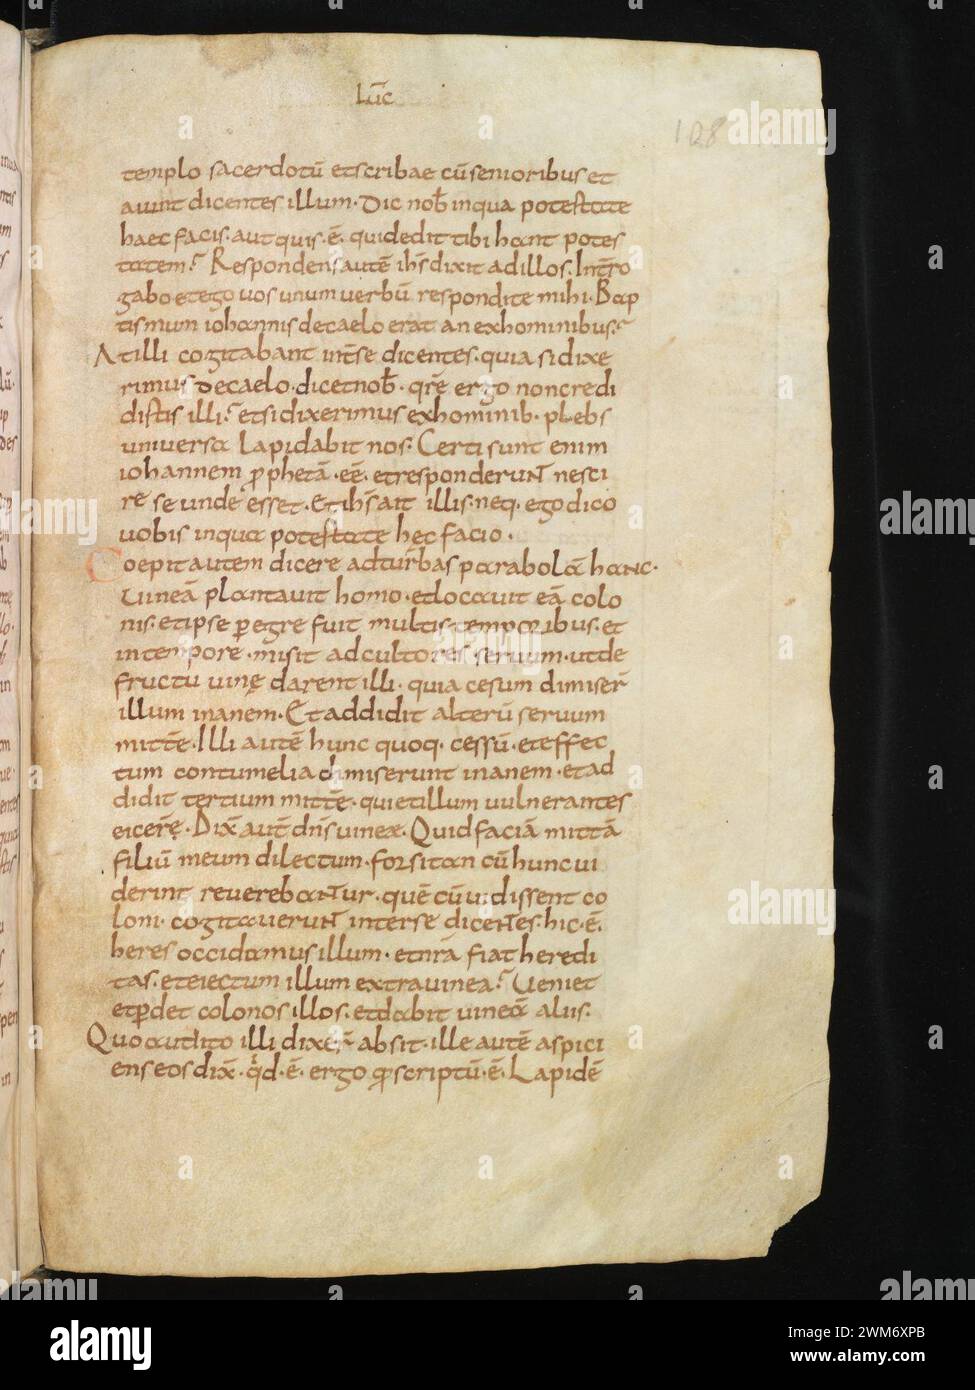 Luc̄
128
templo sacerdotū et scribae cū senioribus et
aiunt dicentes illum· Dic nob̄ in qua potestate
haec facis· aut quis·ē· qui dedit tibi hant potes
tatem? Respondens autē ih̄s dixit ad illos· Int̄ro
gabo et ego uos unum uerbū respondite mihi· Bap
tismum iohannis de caelo erat an ex hominibus?
At illi cogitabant int̄ se dicentes· quia si dixe
rimus de caelo· dicet nob̄· qr̄e ergo non credi
distis illi? et si dixerimus ex hominib· plebs
uniuersa lapidabit nos· Certi sunt enim
iohannem ꝓphetā·eē· et responderunt nesci
re se unde esset· Et ih̄s ait illis· neq· ego dico
uobis in qua potestate hec facio·
Coepit autem dicere ad turbas parabolā hanc·
Uineā plantauit homo· et locauit eā colo
nis· et ipse ꝑegre fuit multis temporibus· et
in tempore· misit ad cultores seruum· ut de
fructu uinę darent illi· qui acesum dimiser̄
illum inanem· Et addidit alterū seruum
mittē· Illi autē hunc quoq· cessū· et effec
tum contumelia dimiserunt inanem· et ad
didit tertium mittē· qui et illum uulnerantes
eicerę̄· Dix̄ aut̄ dn̄s uineæ· Quid faciā mittā
filiū meum dilectum· forsitan cū hunc ui
derint reuerebantur· quē cū uidissent co
loni· cogitauerunt inter se dicentes· hic·ē·
heres occidamus illum· et nr̄a fiat heredi
tas· et eiectum illum extra uinea? Ueniet
et ꝑdet colonos illos· et dabit uineā aliis·
Quo audito illi dixer̄ absit· ille autē aspici
ens eos dix̄· qd·ē· ergo ꝙ scriptū·ē· Lapidē
alamy
Image ID: 2WM6XPB
www.alamy.com